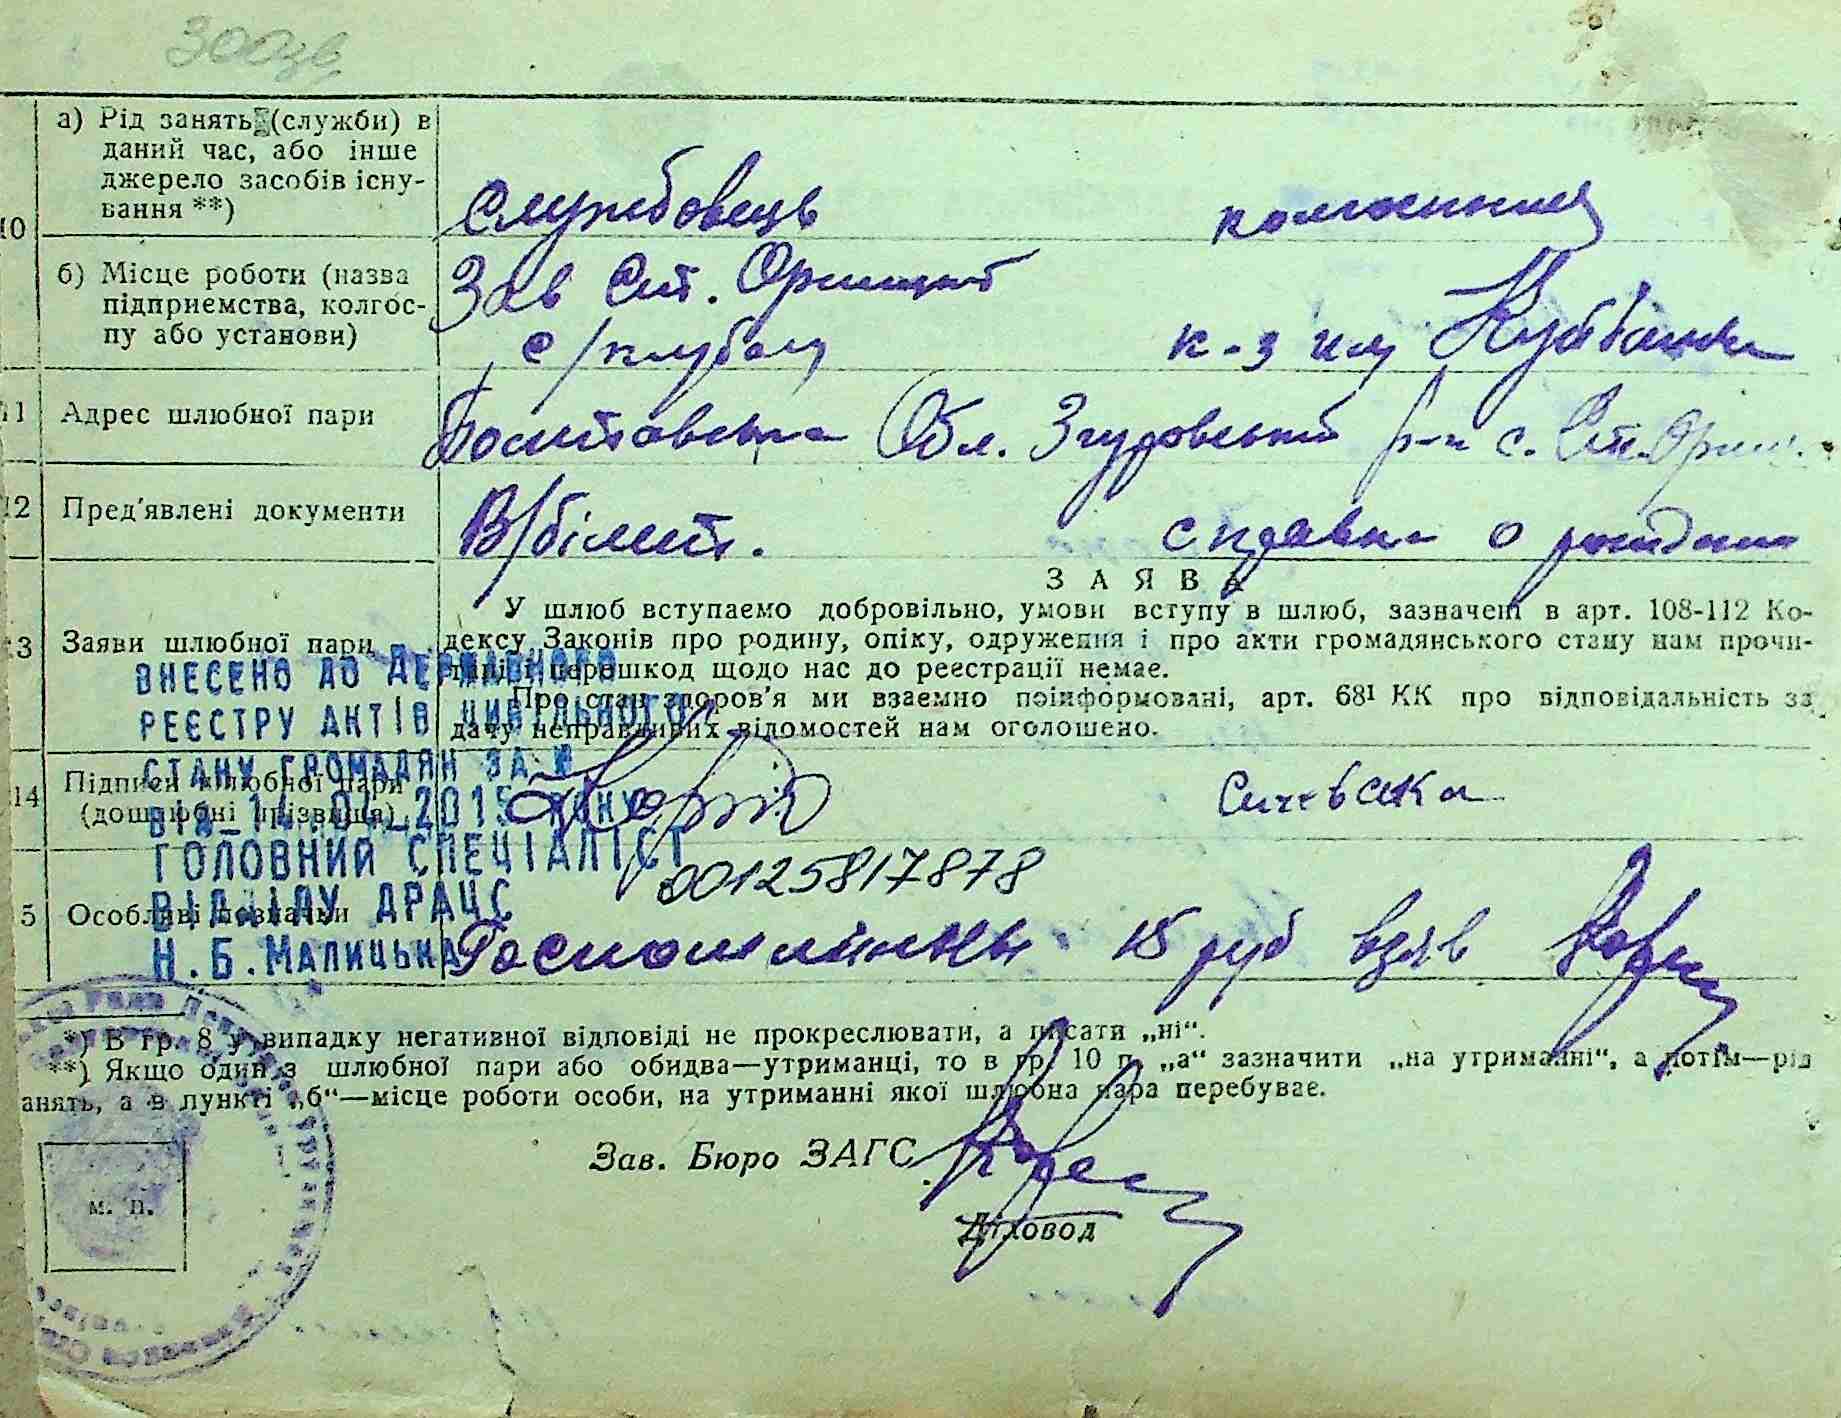 300зв
10
а) Рід занять (служби) в
даний час, або інше
джерело засобів існу-
вання **)
Службовець
колгосниця
б) Місце роботи (назва
підприємства, колгос-
пу або установи)
Зав Ст. Оржицьк
с/клубом
к-з им
11
Адрес шлюбної пари
Полтавська Обл. Згурівський р-н с. Ст. Орж
12
Пред'явлені документи
В/білет.
справка о рождении
З А Я В А
13
Заяви шлюбної пари
У шлюб вступаємо добровільно, умови вступу в шлюб, зазначені в арт. 108-112 Ко-
дексу Законів про родину, опіку, одруження і про акти громадянського стану нам прочи-
тані і перешкод щодо нас до реєстрації немає.
Про стан здоров'я ми взаємно поінформовані, арт. 68¹ КК про відповідальність за
дачу неправдивих відомостей нам оголошено.
ВНЕСЕНО ДО ДЕРЖАВНОГО
РЕЄСТРУ АКТІВ ЦИВІЛЬНОГО
СТАНУ ГРОМАДЯН ЗА №
ВІД 14.04.2015 РОКУ
ГОЛОВНИЙ СПЕЦІАЛІСТ
ВІДДІЛУ ДРАЦС
Н.Б.МАЛИЦЬКА
14
Підписи шлюбної пари
(дошлюбні прізвища)
00125817878
5
Особливі позначки
Госпошлины 15 руб взяв
*) В гр. 8 у випадку негативної відповіді не прокреслювати, а писати „ні“.
**) Якщо один з шлюбної пари або обидва—утриманці, то в гр. 10 п. „а“ зазначити „на утриманні“, а потім—рід
анять, а в пункті „б“—місце роботи особи, на утриманні якої шлюбна пара перебуває.
Зав. Бюро ЗАГС
Діловод
м. п.